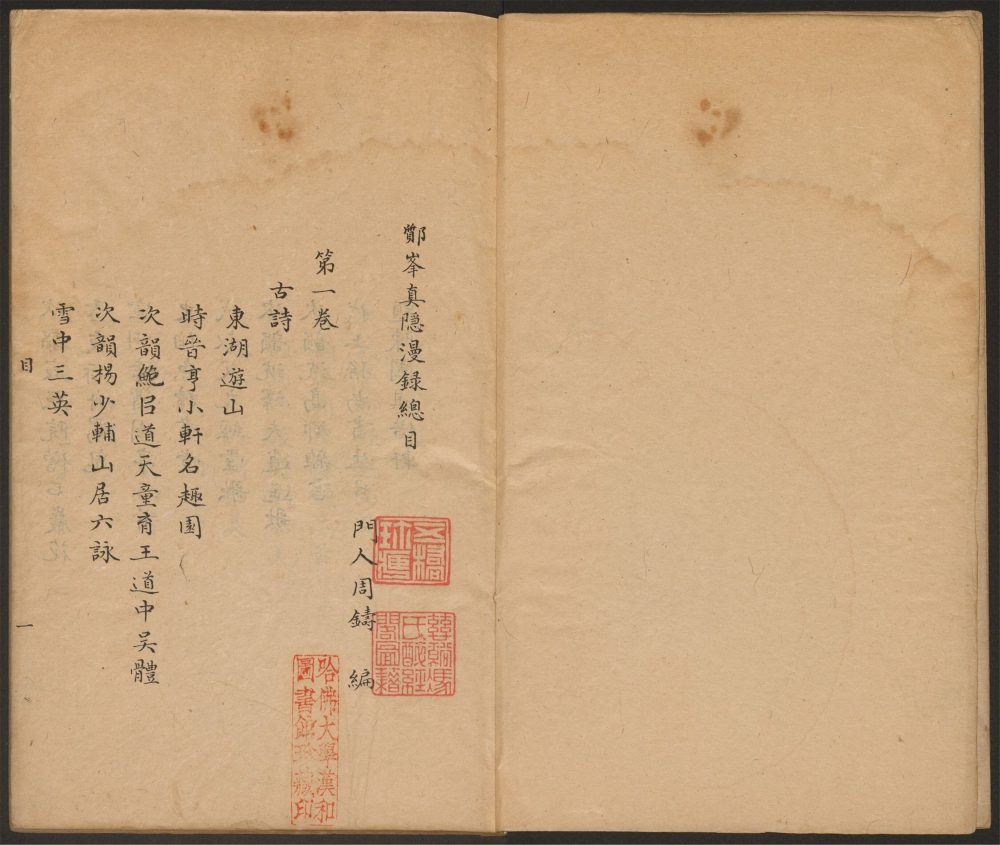 鄮峯真隱漫録總目
門人周鑄　編
第一卷
古詩
東湖遊山
時晉亨小軒名趣園
次韻鮑㠯道天童育王道中吴體
次韻揚少輔山居六詠
雪中三英
目
一
哈佛大學漢和
圖書館珍藏印